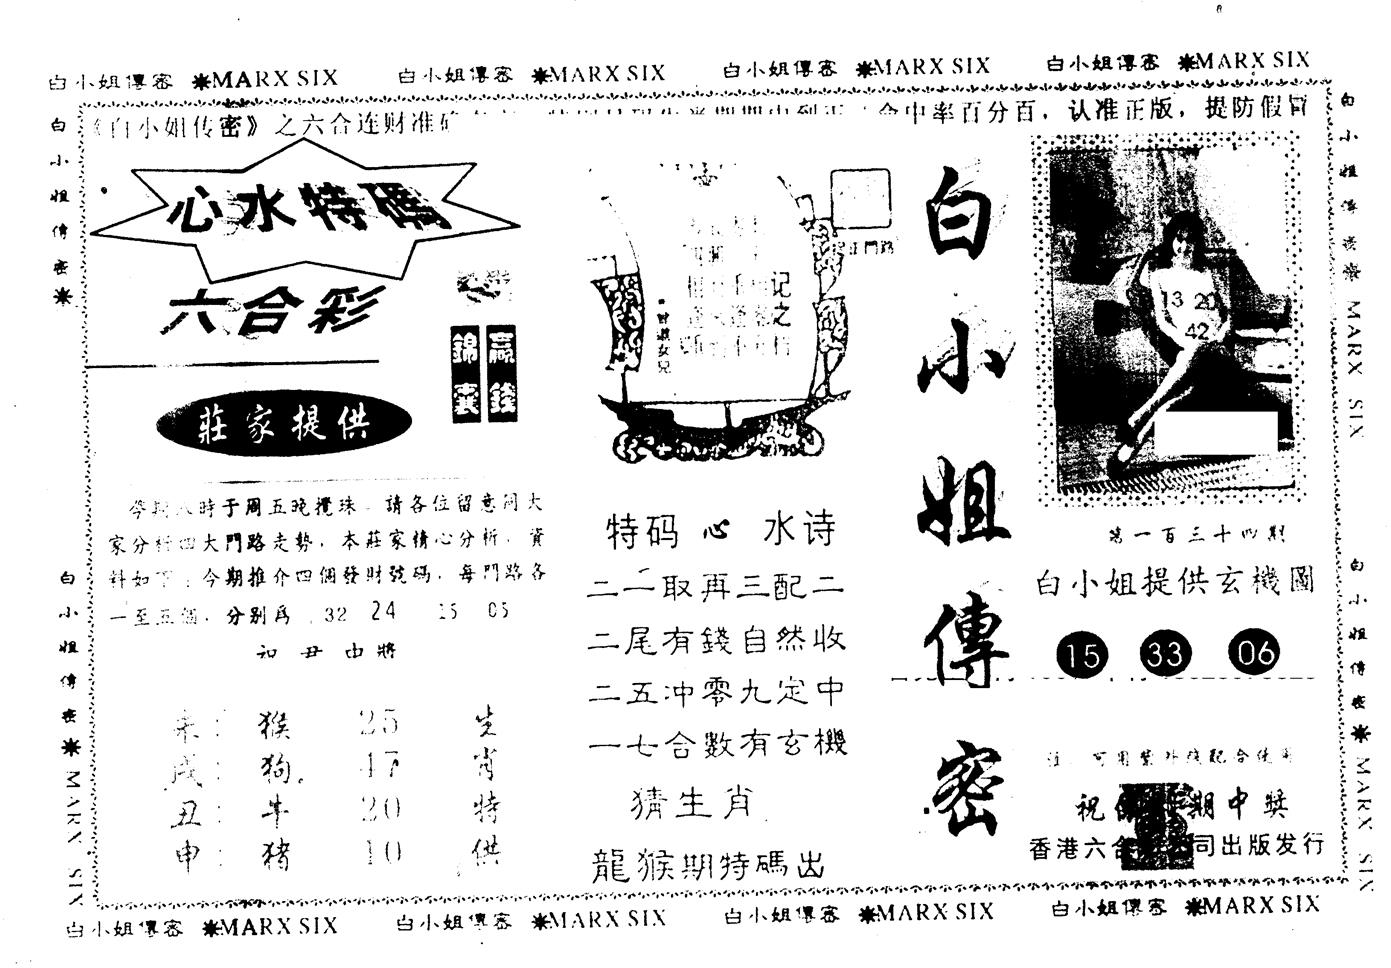 白小姐傳密 ✷MARX SIX 白小姐傳密 ✷MARX SIX 白小姐傳密 ✷MARX SIX 白小姐傳密 ✷MARX SIX
《白小姐传密》之六合连财准确
命中率百分百，认准正版，提防假冒
白小姐傳密✷
白小姐傳密✷ MARX SIX
心水特碼
六合彩
贏錢
錦囊
莊家提供
時于周五晚攪珠．請各位留意同大
家分析四大門路走勢．本莊家精心分析．資
料如下：今期推介四個發財號碼．每門路各
一至五個．分别爲 32 24 15 05
未： 猴 25 生
戌： 狗 47 肖
丑： 牛 20 特
申： 猪 10 供
记
之
門路
特码 心 水诗
二一取再三配二
二尾有錢自然收
二五冲零九定中
一七合數有玄機
猜生肖
龍猴期特碼出
白小姐傳密
13 20
42
第一百三十四期
白小姐提供玄機圖
15 33 06
注：可用紫外綫配合使用
祝 期中獎
香港六合 司出版发行
白小姐傳密✷ MARX SIX
白小姐傳密✷ MARX SIX
白小姐傳密 ✷MARX SIX 白小姐傳密 ✷MARX SIX 白小姐傳密 ✷MARX SIX 白小姐傳密 ✷MARX SIX